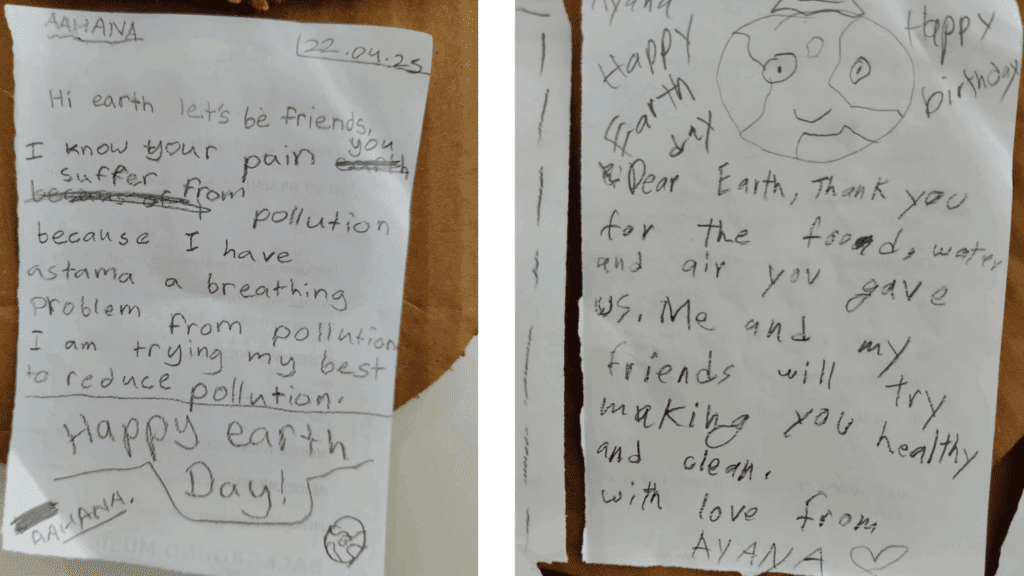 AAHANA
22.04.25
Hi earth let's be friends,
I know your pain you
suffer from
pollution
because I have
astama a breathing
problem from pollution
I am trying my best
to reduce pollution.
Happy earth
Day!
AAHANA.
Ayana
Happy
Earth
day
Happy
birthday
Dear Earth, Thank you
for the food, water
and air you gave
us. Me and my
friends will try
making you healthy
and clean.
with love from
AYANA